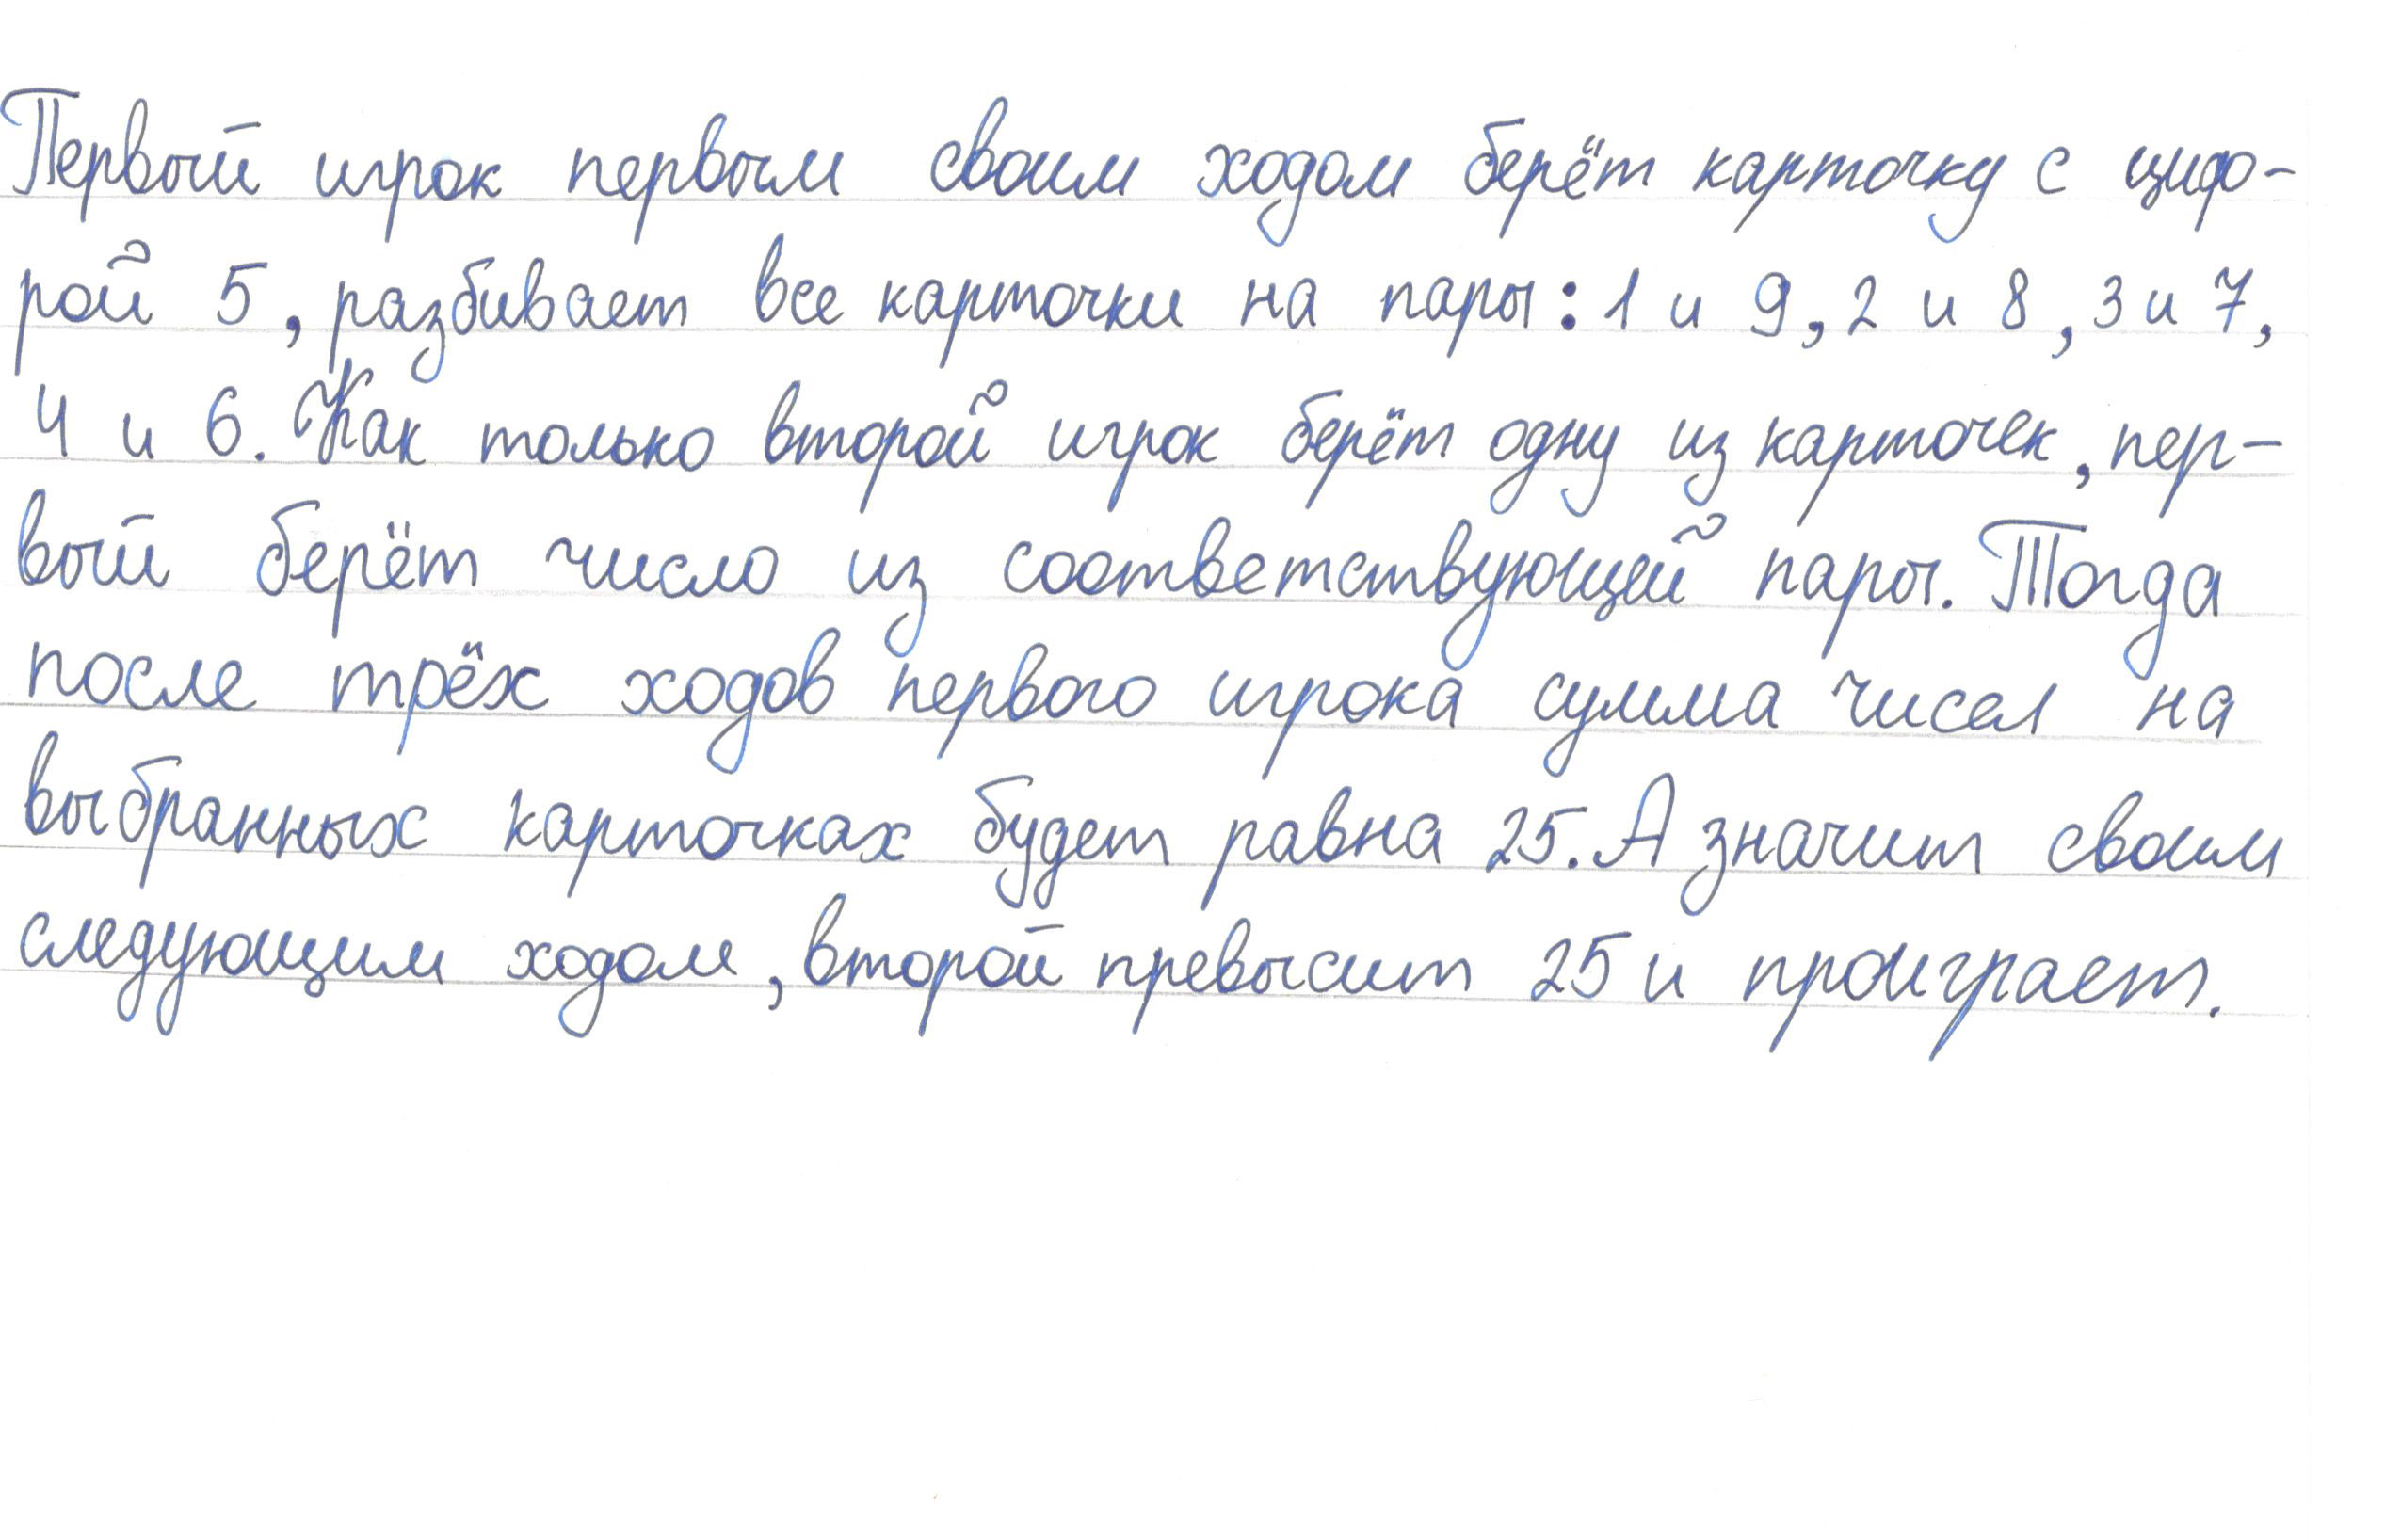 Первый игрок первым своим ходом берёт карточку с циф-
рой 5, разбивает все карточки на пары: 1 и 9, 2 и 8, 3 и 7,
4 и 6. Как только второй игрок берёт одну из карточек, пер-
вый берёт число из соответствующей пары. Тогда
после трёх ходов первого игрока сумма чисел на
выбранных карточках будет равна 25. А значит своим
следующим ходом, второй превысит 25 и проиграет.